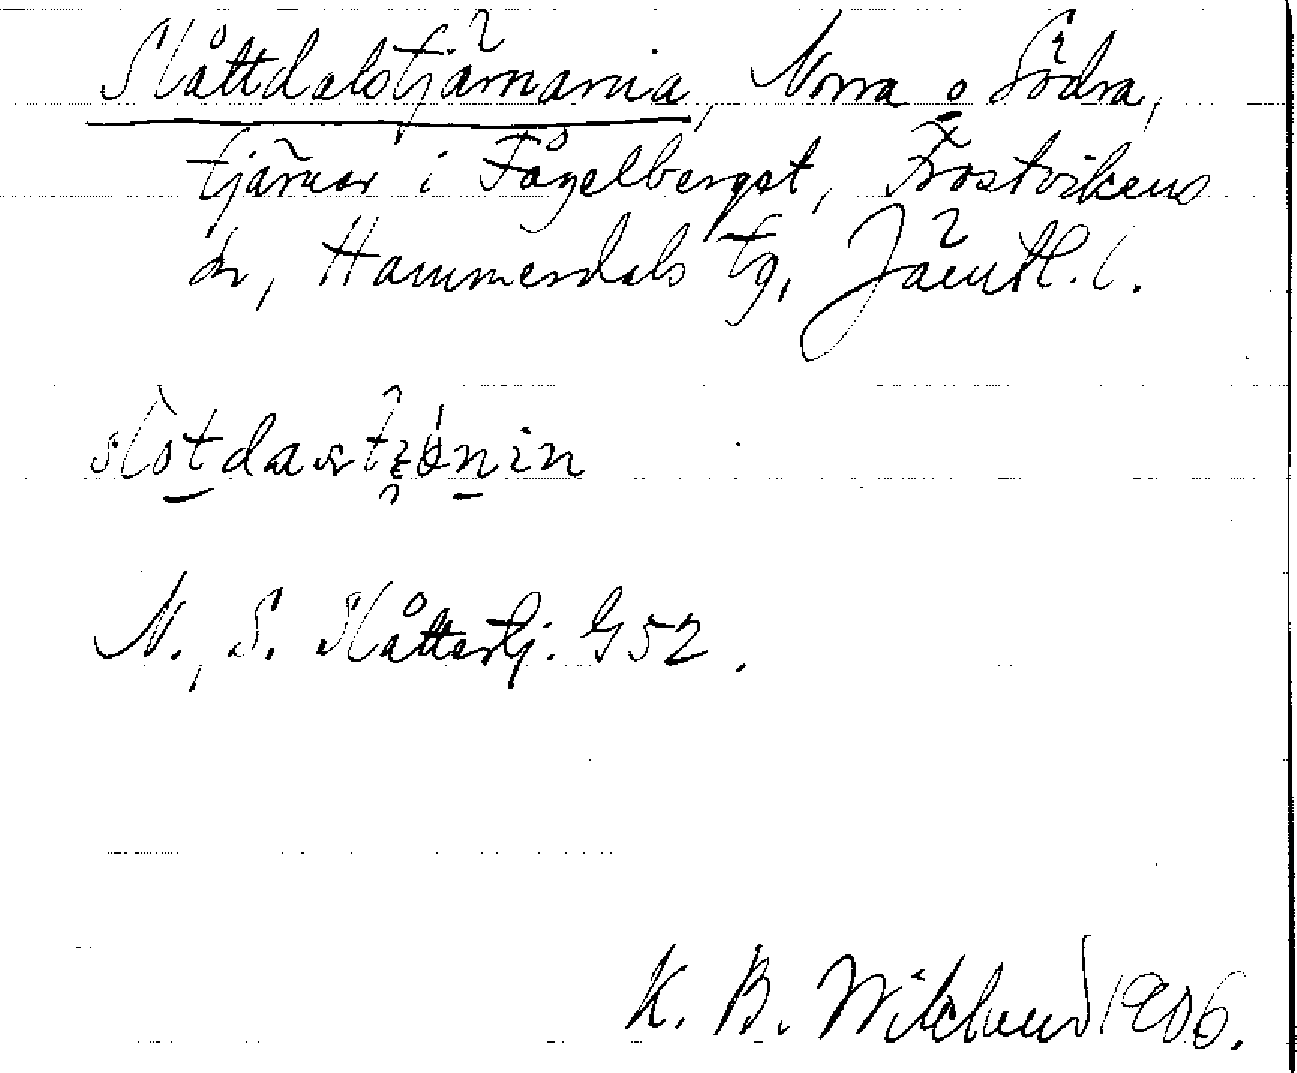 Slåttdalstjärnarna, Norra o Södra,
tjärnar i Fågelberget, Frostvikens
sn, Hammerdals tg, Jämtl. l.
N., S. Slåttertj. G 52.
K. B. Wiklund 1906.